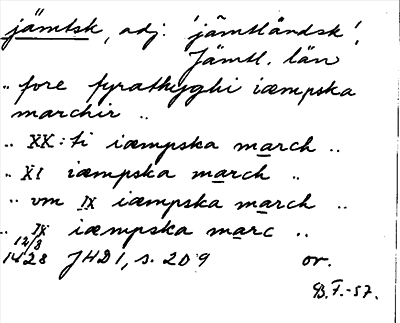 jämtsk, adj: 'jämtländsk',
Jämtl. län
.. fore fyrathyghi iæmpska
marchir ..
.. XX:ti iæmpska march ..
.. XI iæmpska march ..
.. vm IX iæmpska march ..
.. IX iæmpska marc ..
12/8
1428 JHD 1, s. 209 or.
B.F.-57.